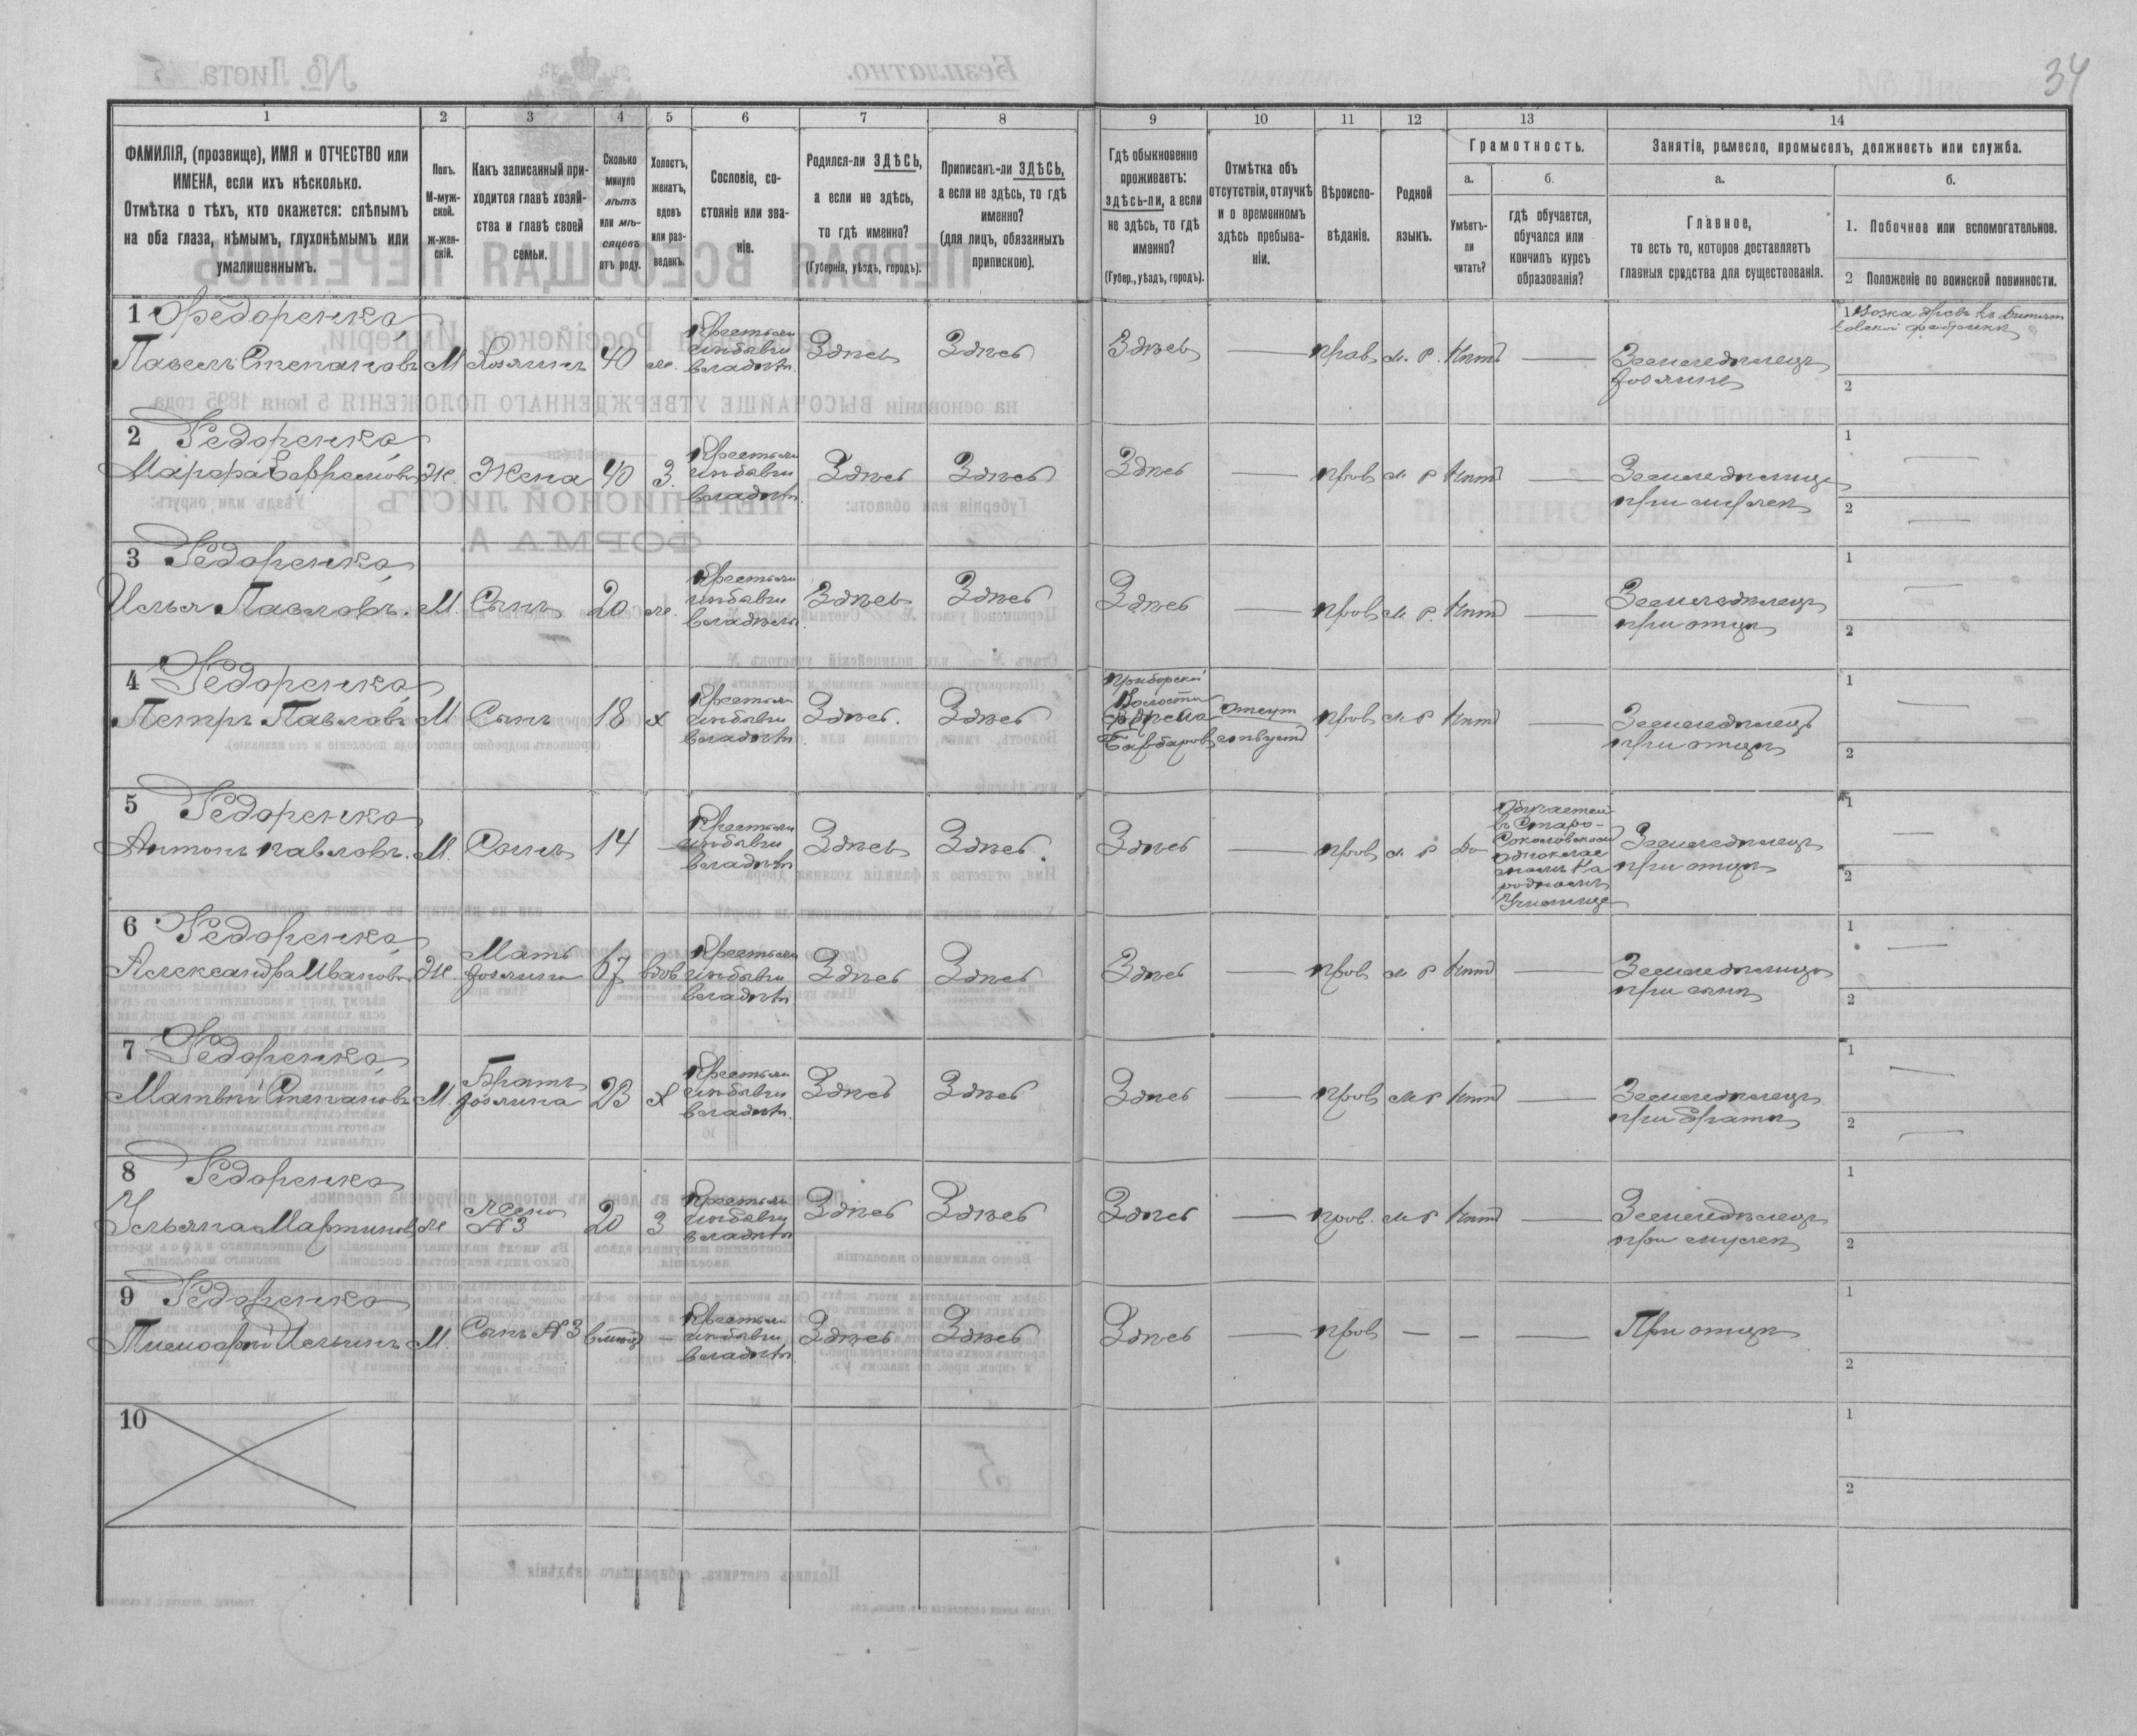 34
1 2 3 4 5 6 7 8 9 10 11 12 13 14
ФАМИЛІЯ, (прозвище), ИМЯ и ОТЧЕСТВО или
ИМЕНА, если ихъ нѣсколько.
Отмѣтка о тѣхъ, кто окажется: слѣпымъ
на оба глаза, нѣмымъ, глухонѣмымъ или
умалишеннымъ.
Полъ.
М-муж-
ской.
ж-жен-
скій.
Какъ записанный при-
ходится главѣ хозяй-
ства и главѣ своей
семьи.
Сколько
минуло
лѣтъ
или мѣ-
сяцевъ
отъ роду.
Холостъ,
женатъ,
вдовъ
или раз-
веденъ.
Сословіе, со-
стояніе или зва-
ніе.
Родился-ли ЗДѢСЬ,
а если не здѣсь,
то гдѣ именно?
(Губернія, уѣздъ, городъ).
Приписанъ-ли ЗДѢСЬ,
а если не здѣсь, то гдѣ
именно?
(для лицъ, обязанныхъ
припискою).
Гдѣ обыкновенно
проживаетъ:
здѣсь-ли, а если
не здѣсь, то гдѣ
именно?
(Губер., уѣздъ, городъ).
Отмѣтка объ
отсутствіи, отлучкѣ
и о временномъ
здѣсь пребыва-
ніи.
Вѣроиспо-
вѣданіе.
Родной
языкъ.
Грамотность.
а.
Умѣетъ-
ли
читать?
б.
гдѣ обучается,
обучался или
кончилъ курсъ
образованія?
Занятіе, ремесло, промыселъ, должность или служба.
а.
Главное,
то есть то, которое доставляетъ
главныя средства для существованія.
б.
1. Побочное или вспомогательное.
2 Положеніе по воинской повинности.
1 Федоренко
Павелъ Степановъ М Хозяинъ 40 ж. Крестьян. изъ бывш. владѣл. Здѣсь Здѣсь Здѣсь — прав. м. р. нѣтъ — Земледѣлецъ
хозяинъ
1 Возка дровъ къ
2
2 Федоренко
Марфа Ефремова Ж. Жена 40 З. Крестьян. изъ бывш. владѣл. Здѣсь Здѣсь Здѣсь — прав. м р нѣтъ — Земледѣлица
при мужѣ
1 —
2 —
3 Федоренко
Илья Павловъ. М. Сынъ 20 ж. Крестьян. изъ бывш. владѣл. Здѣсь Здѣсь Здѣсь — прав. м. р. нѣтъ — Земледѣлецъ
при отцѣ
1 —
2
4 Федоренко
Петръ Павловъ М Сынъ 18 х Крестьян. изъ бывш. владѣл. Здѣсь. Здѣсь
Приборской
Волости
отсут
ствуетъ
прав. м р нѣтъ — Земледѣлецъ
при отцѣ
1 —
2 —
5 Федоренко
Антонъ Павловъ. М. Сынъ 14 — Крестьян. изъ бывш. владѣл. Здѣсь Здѣсь. Здѣсь — прав. м р да
Обучается
въ Старо-
Соколовскомъ
одноклас
сномъ На
родномъ
Училище
Земледѣлецъ
при отцѣ
1 —
2
6 Федоренко
Александра Иванова Ж. Мать
хозяина 67 вдов. Крестьян. изъ бывш. владѣл. Здѣсь Здѣсь Здѣсь — прав. м р нѣтъ — Земледѣлица
при сынѣ
1 —
2
7 Федоренко
Матвѣй Степановъ М. Братъ
хозяина 23 х Крестьян. изъ бывш. владѣл. Здѣсь Здѣсь Здѣсь — прав. м р нѣтъ — Земледѣлецъ
при братѣ
1 —
2 —
8 Федоренко
Ульяна Мартинова ж Жена
№ 3 20 З Крестьян. изъ бывш. владѣл. Здѣсь Здѣсь Здѣсь — прав. м р нѣтъ — Земледѣлецъ
при мужѣ
1
2
9 Федоренко
Тимофѣй Ильинъ М. Сынъ № 3 — Крестьян. изъ бывш. владѣл. Здѣсь Здѣсь Здѣсь — прав. — — — При отцѣ
1
2
10
1
2